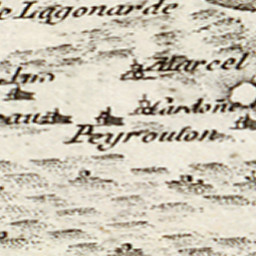 e Lagonarde
Marcel
Cardoñe
eau
Peyroulon